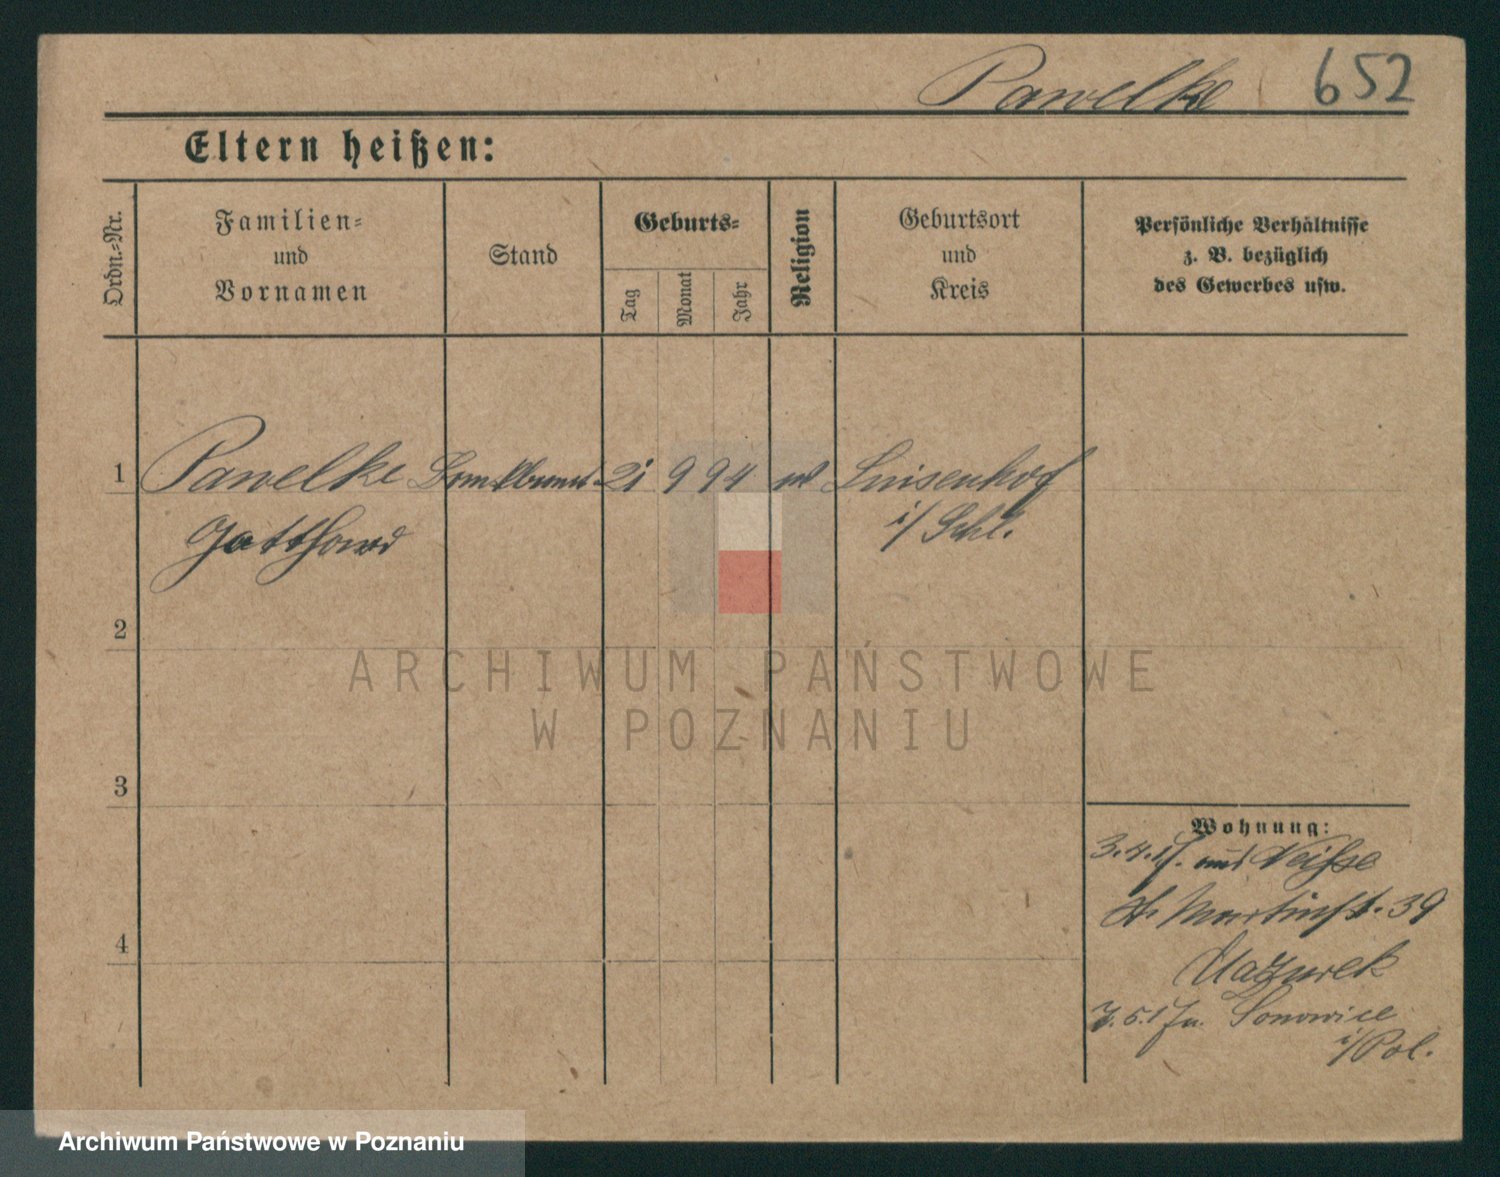 Pawelke 652
Eltern heißen:
Ordn.-Nr.
Familien-
und
Vornamen
Stand
Geburts-
Tag
Monat
Jahr
Religion
Geburtsort
und
Kreis
Persönliche Verhältnisse
z. B. bezüglich
des Gewerbes usw.
1 Pawelke 21 9 94 Luisenhof
Gotthard i/Schl.
2
3
4
Wohnung:
3.4.17. aus Neisse
St. Martinst. 39
Mazurek
i/Pol.
ARCHIWUM PAŃSTWOWE
W POZNANIU
Archiwum Państwowe w Poznaniu